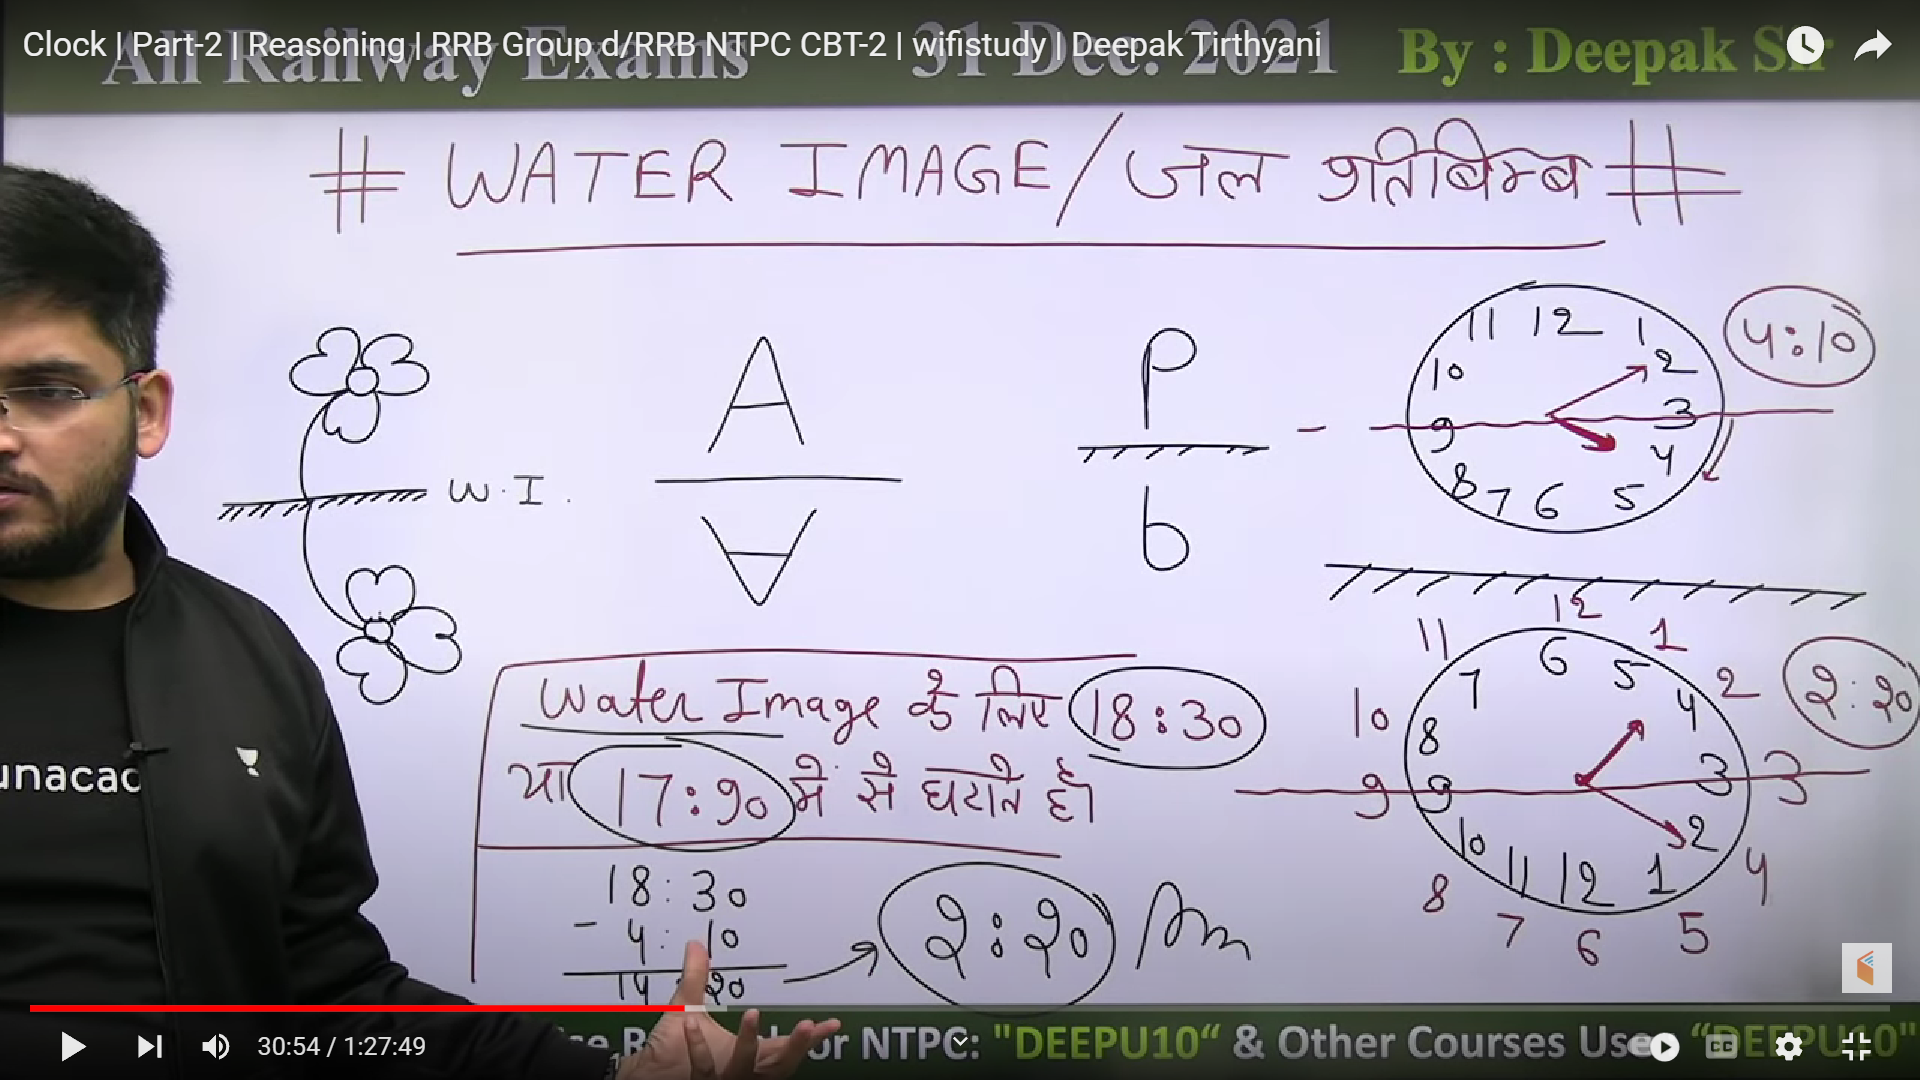 Clock | Part-2 | Reasoning | RRB Group d/RRB NTPC CBT-2 | wifistudy | Deepak Tirthyani
All Railway Exams 31 Dec. 2021 By : Deepak Sir
# WATER IMAGE/जल प्रतिबिम्ब #
11 12 1
10 2
9 3
8 4
7 6 5
4:10
A
P
W.I.
A
b
12
11 1
10 2
9 3
8 4
7 6 5
6
7 5
8 4
9 3
10 2
11 12 1
2:20
Water Image के लिए 18:30
या 17:90 में से घटाते है।
18:30
- 4:10
14 20
2:20 Ans
unacad
30:54 / 1:27:49
or NTPC: "DEEPU10" & Other Courses Use “DEEPU10"